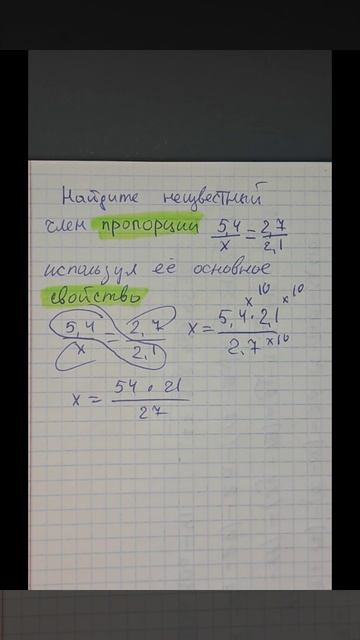 Найдите неизвестный
член пропорции 5,4/x = 2,7/2,1
используя её основное
свойство
5,4/x = 2,7/2,1
x = 5,4 · 2,1/2,7 x10 x10 x10
x = 54 · 21/27